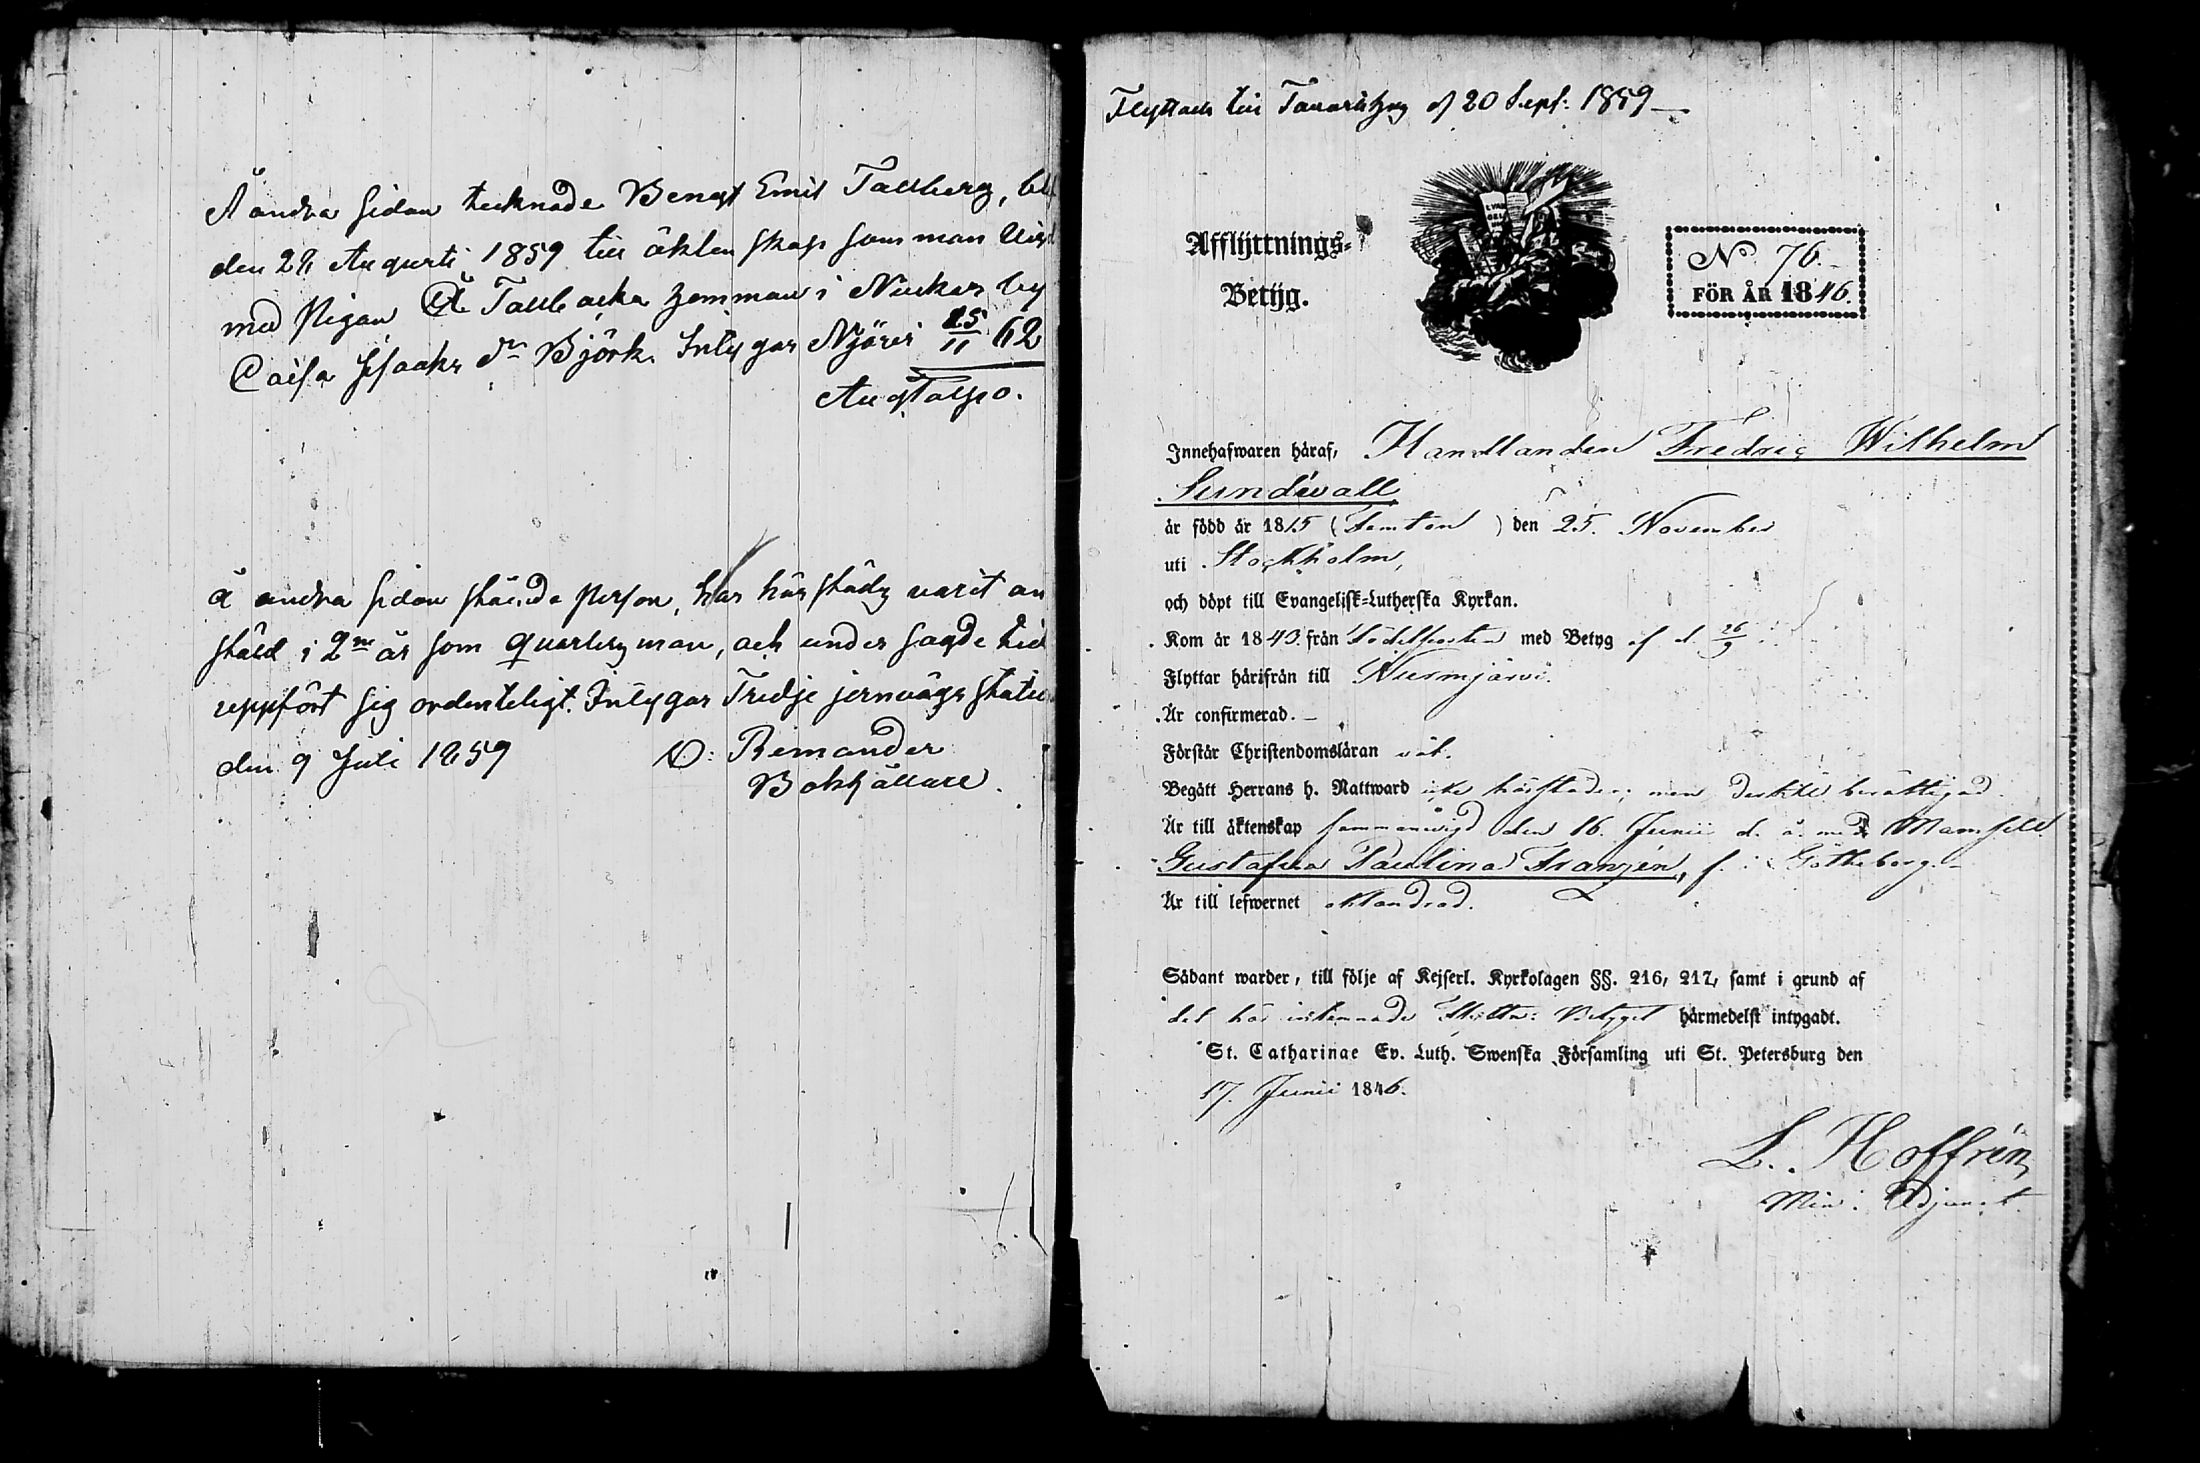 Å andra sidan tecknade Bengt Emil Tallberg, ble
den 28 Augusti 1859 till äktenskap samman vigd
med pigan å Tallbacka hemman i Nuckar by
Caisa Isaaks dr Björk. Intygar Njöris 25/11 62
Aug Talpo.
å andra sidan stående person, har härstädes varit an
stäld i 2ne år som quartersman, och under sagde tid
uppfört sig ordenteligt. Intygar Tredje jernvägs statio
den 9 Juli 1859 O: Rimander
Bokhållare.
Flyttade till Tavastehus d 20 Sept: 1859
Afflyttnings-
Betyg.
EVAN
GELI
No 76.
FÖR ÅR 1846.
Innehafwaren häraf, Handlanden Fredric Wilhelm
Sundwall
är född år 1815 (Femton) den 25. November
uti Stockholm,
och döpt till Evangelisk-Lutherska Kyrkan.
Kom år 1843. från Födelseorten med Betyg af d. 26/9
Flyttar härifrån till Nurmijärvi.
Är confirmerad.
Förstår Christendomsläran väl.
Begått Herrans h. Nattward icke härstädes; men dertill berättigad.
Är till äktenskap sammanvigd den 16. Junii d. å. med Mamsell
Gustafva Paulina Franzén, f. i Götheborg.
Är till lefwernet oklandrad.
Sådant warder, till följe af Kejserl. Kyrkolagen §§. 216, 217, samt i grund af
det här inlemnade Flyttn: Betyget härmedelst intygadt.
St. Catharinae Ev. Luth. Swenska Församling uti St. Petersburg den
17. Junii 1846.
L. Hoffrén
Min: Adjunct.